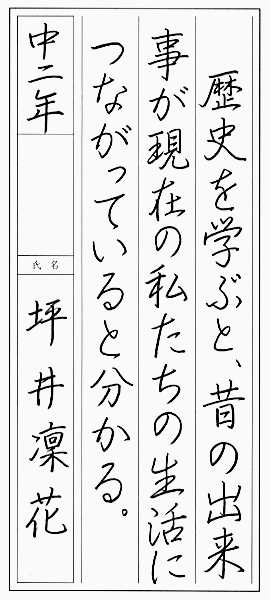 歴史を学ぶと、昔の出来
事が現在の私たちの生活に
つながっていると分かる。
中二年
氏名
坪井凛花